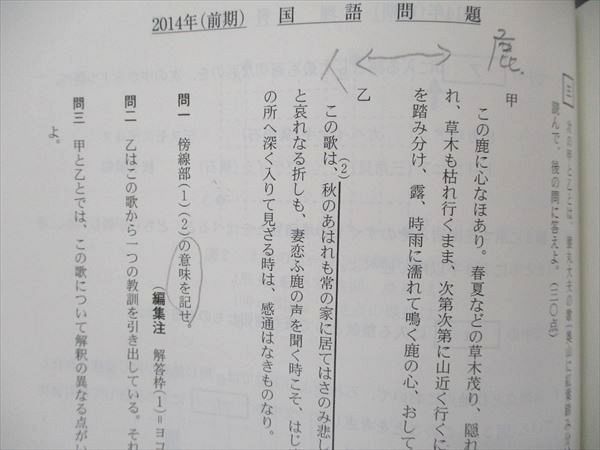 2014年(前期) 国語問題
鹿
人
三 次の甲と乙とは、猿丸大夫の歌「奥山に紅葉踏み分
読んで、後の問に答えよ。(二〇点)
甲
この鹿に心なほあり。春夏などの草木茂り、隠れ
れ、草木も枯れ行くまま、次第次第に山近く行くに
を踏み分け、露、時雨に濡れて鳴く鹿の心、おして
乙
この歌は、(2)秋のあはれも常の家に居てはさのみ悲し
と哀れなる折しも、妻恋ふ鹿の声を聞く時こそ、はじ
の所へ深く入りて見ざる時は、感通はなきものなり。
問一 傍線部(1)(2)の意味を記せ。
(編集注 解答枠(1)=ヨコ
問二 乙はこの歌から一つの教訓を引き出している。それ
問三 甲と乙とでは、この歌について解釈の異なる点がい
よ。